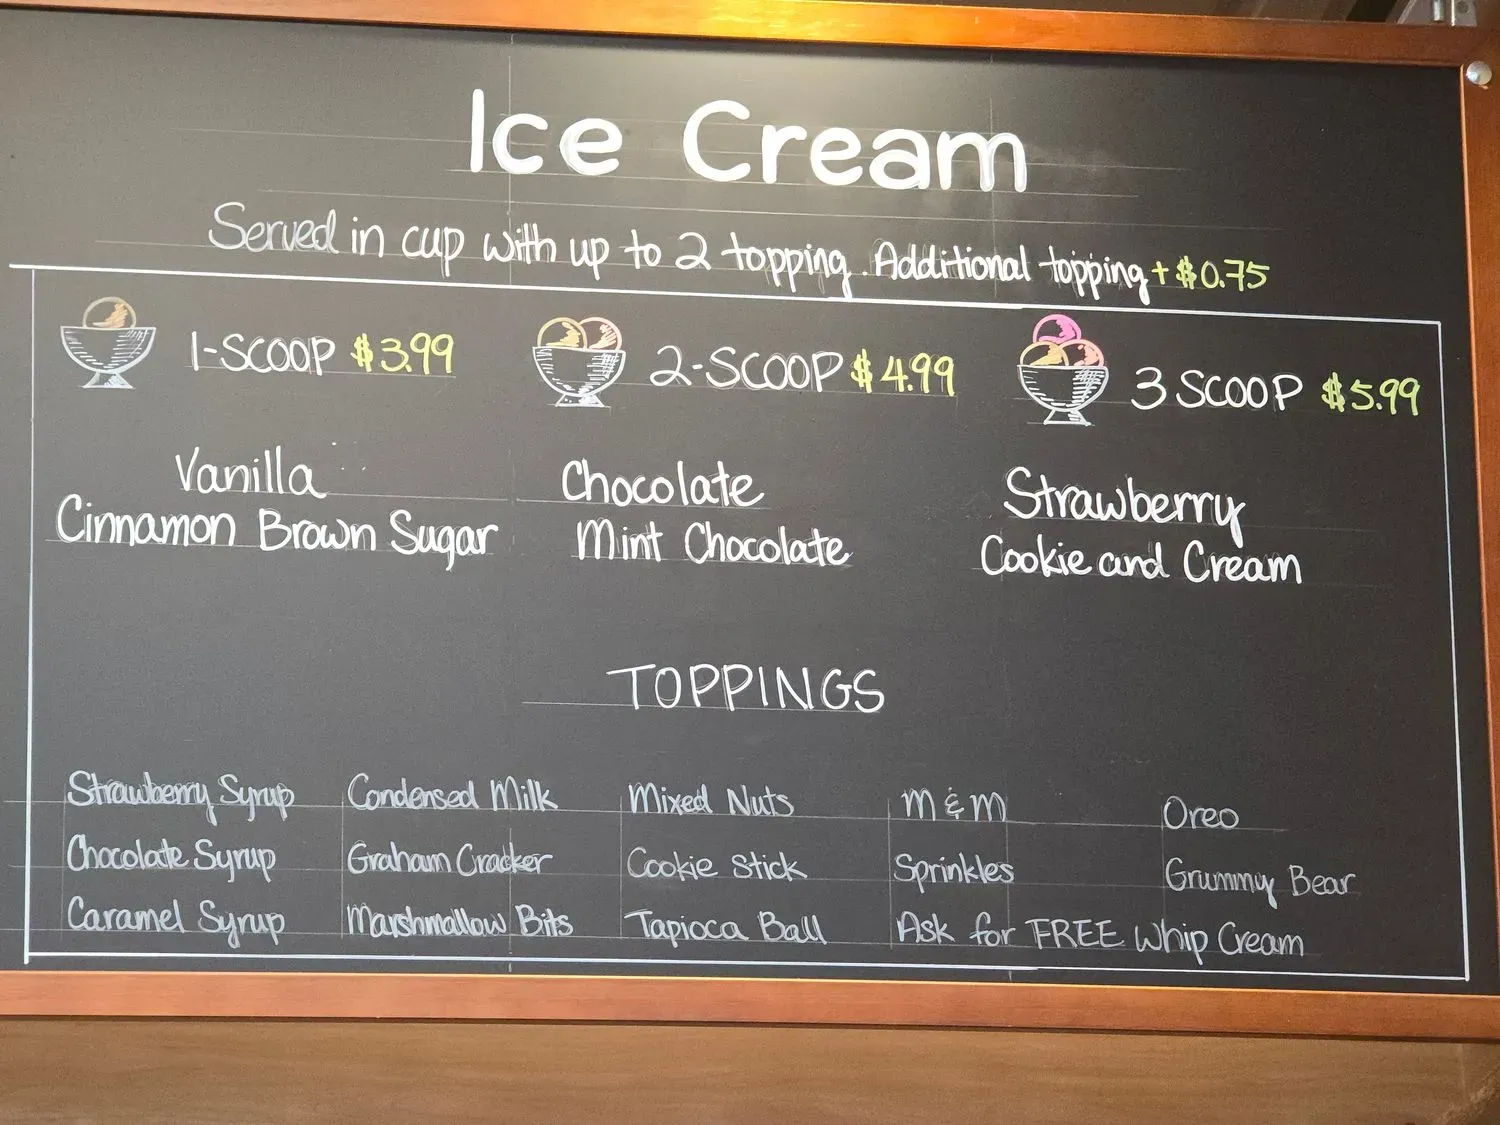 Ice Cream
Served in cup with up to 2 topping. Additional topping + $0.75
1-SCOOP $3.99
2-SCOOP $4.99
3 SCOOP $5.99
Vanilla
Cinnamon Brown Sugar
Chocolate
Mint Chocolate
Strawberry
Cookie and Cream
TOPPINGS
Strawberry Syrup
Chocolate Syrup
Caramel Syrup
Condensed Milk
Graham Cracker
Marshmallow Bits
Mixed Nuts
Cookie Stick
Tapioca Ball
M & M
Sprinkles
Oreo
Grummy Bear
Ask for FREE Whip Cream